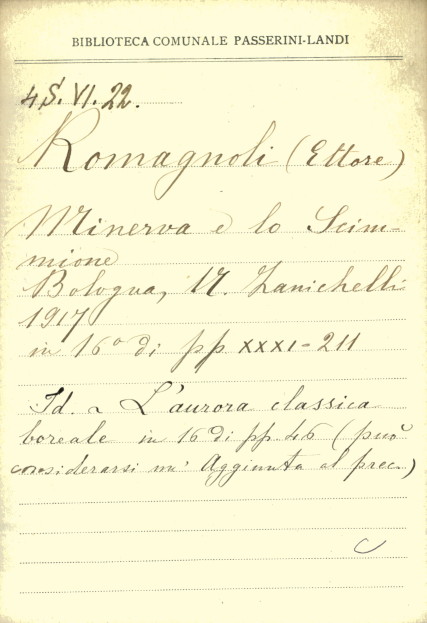 BIBLIOTECA COMUNALE PASSERINI-LANDI
4S. VI. 22.
Romagnoli (Ettore)
Minerva e lo Scim-
mione
Bologna, N. Zanichelli
1917
in 16° di pp XXXI-211
Id. - L'aurora classica
boreale in 16 di pp. 46 (può
considerarsi un' Aggiunta al prec.)